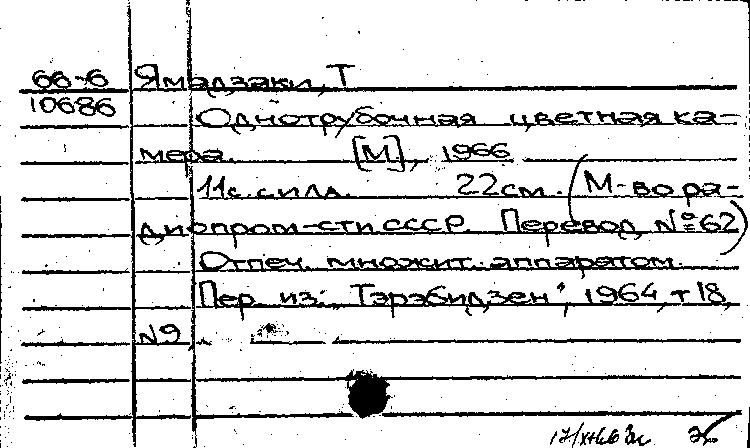 66-6 Ямадзаки, Т
10686
Однотрубочная цветная ка-
мера. [М], 1966
11 с. с илл. 22 см. (М-во ра-
диопром-сти СССР. Перевод №62)
Отпеч. множит. аппаратом.
Пер. из: "Тэрэбидзен", 1964, т 18,
N9,